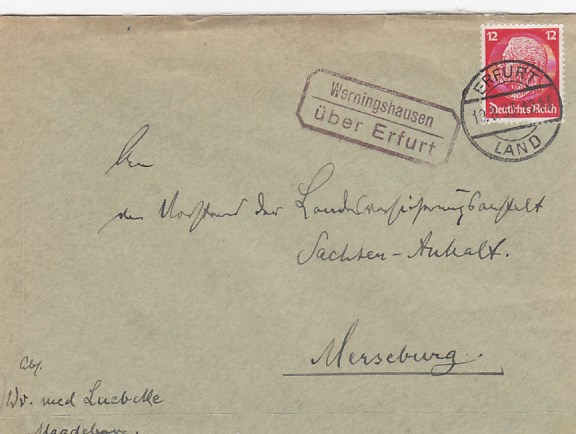 12 12
Deutsches Reich
ERFURT
LAND
Werningshausen
über Erfurt
An
den Vorstand der Landesversicherungsanstalt
Sachsen-Anhalt.
Merseburg.
Abs.
Dr. med Luebcke
Magdeburg.